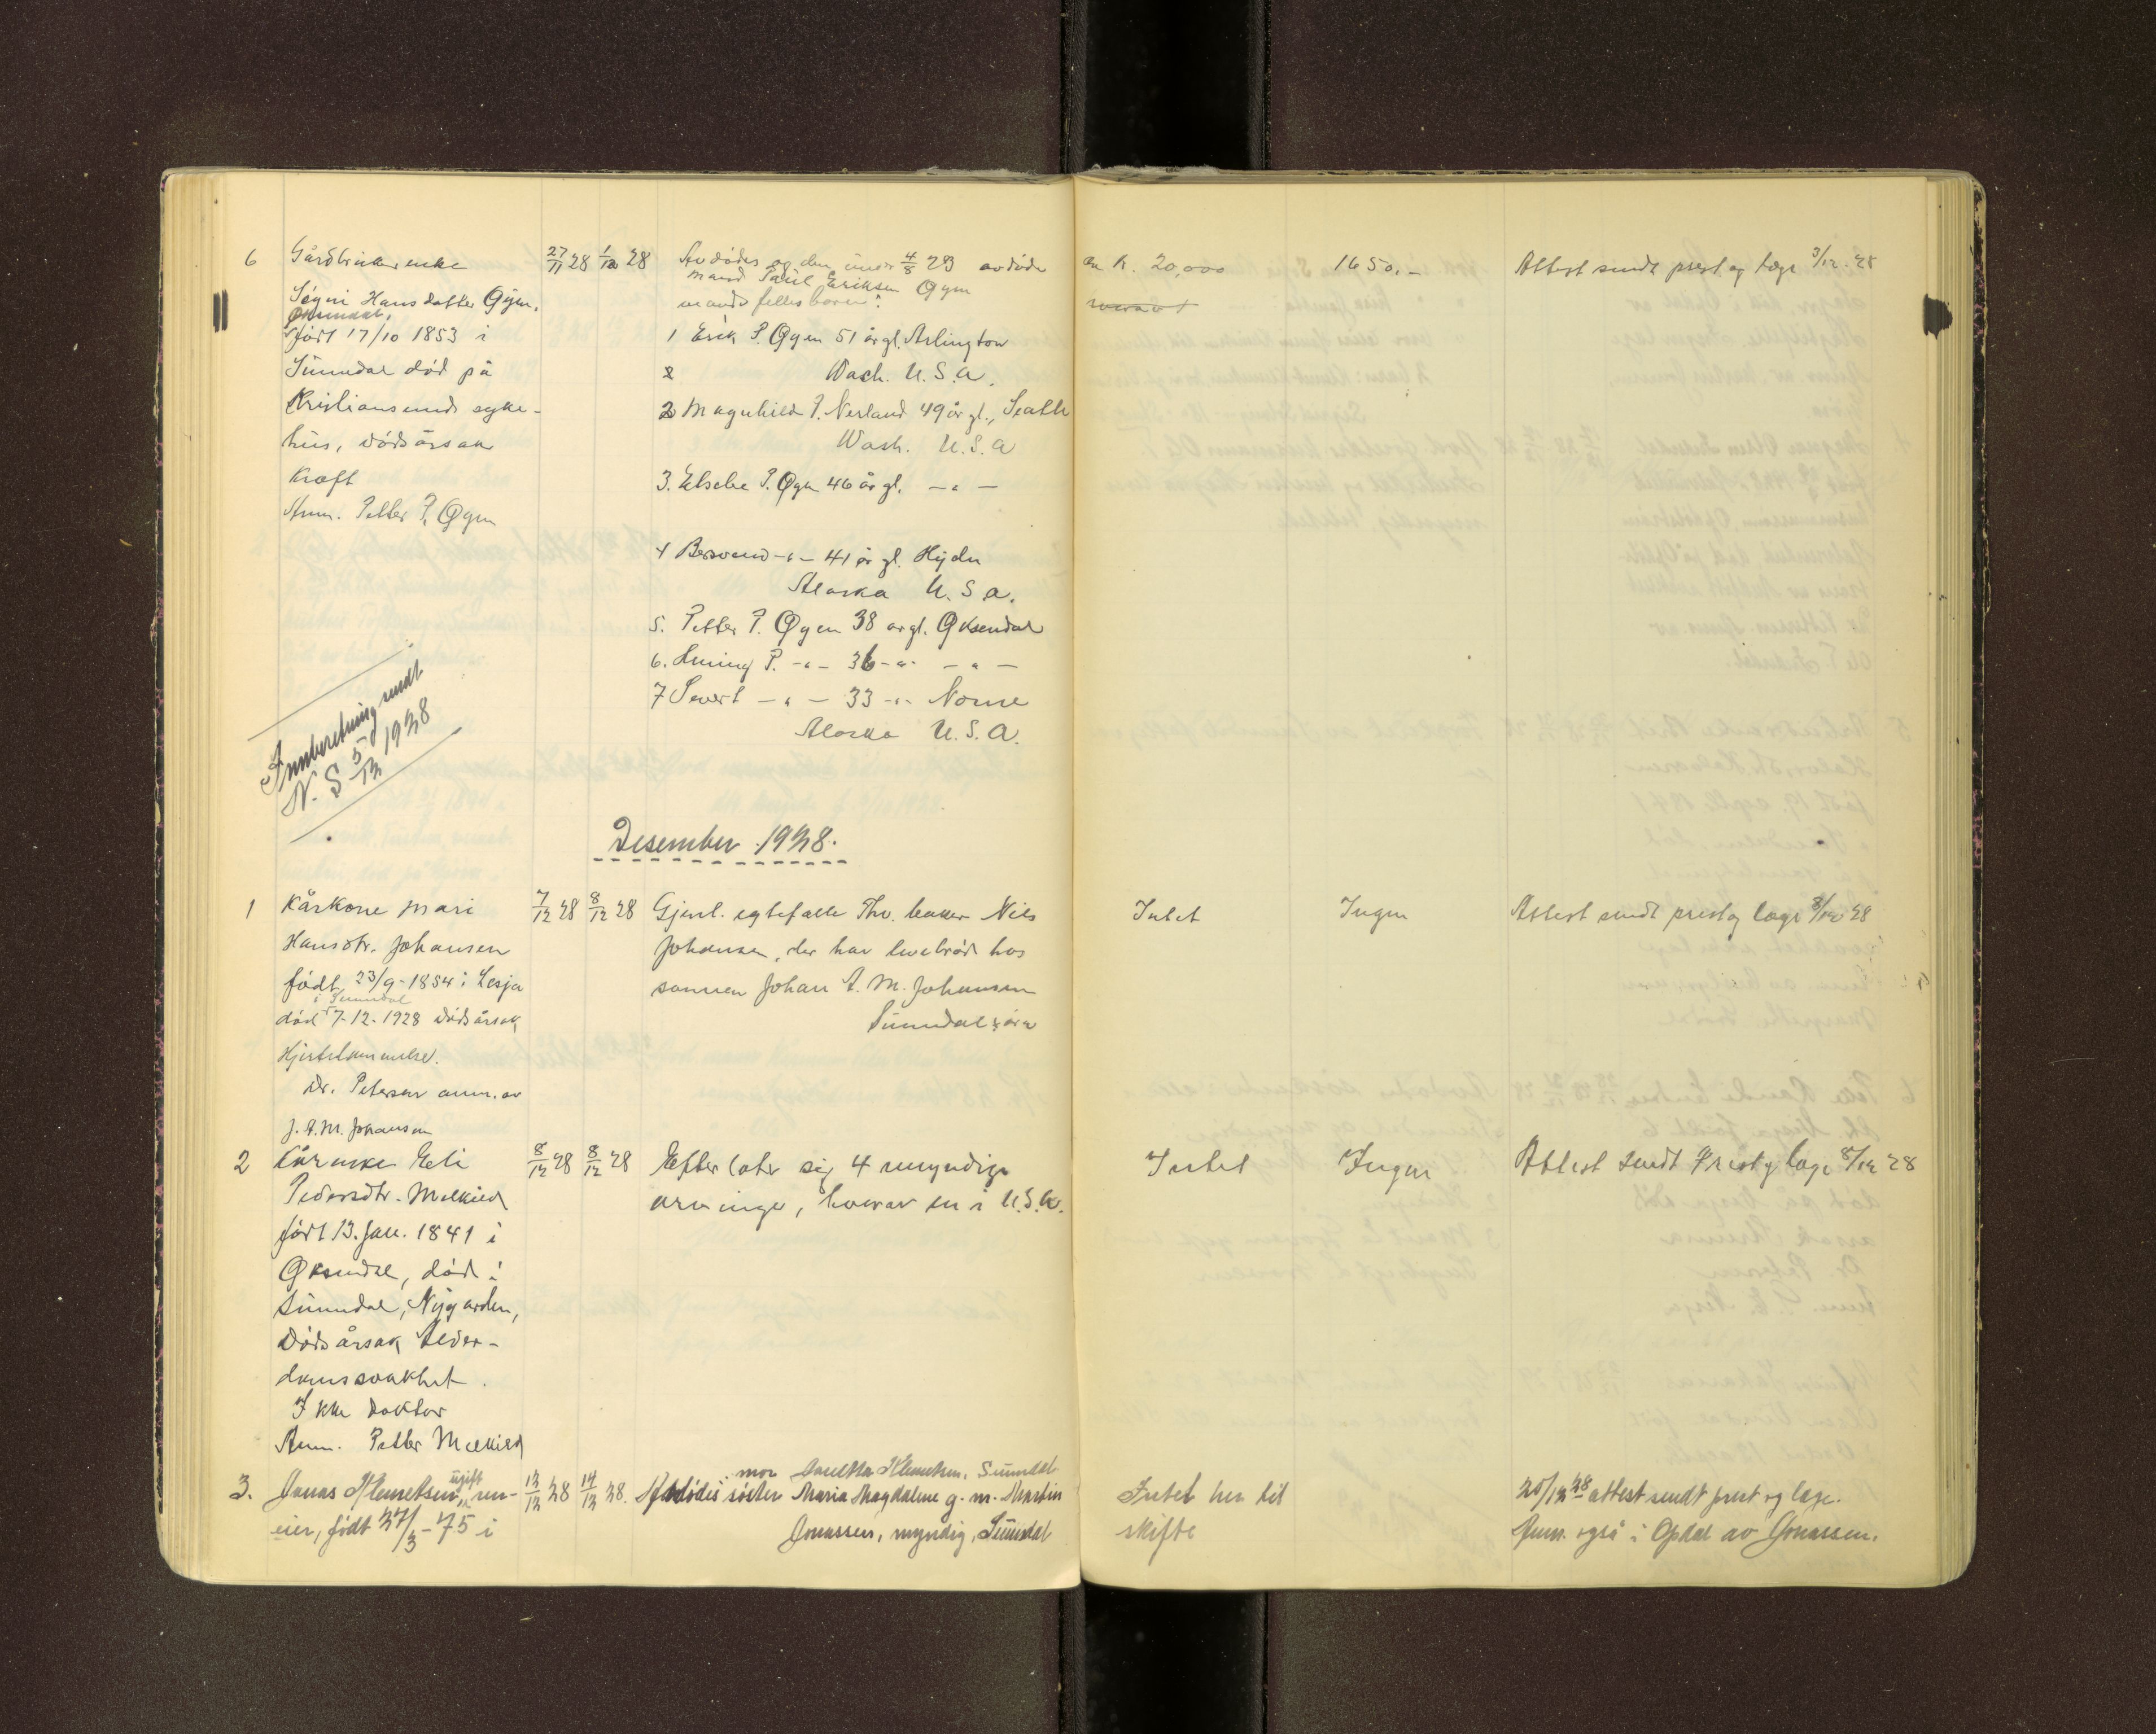 6 Gårdbrukerenke 27/11 28 1/12 28 Avdødes og den under 4/8 23 avdøde ca K. 20,000 1650,- Attest sendt prest og læge 3/12 28
mand Paul Eriksen Øgen
Søgni Hansdatter Øgen, mands fellesbarn:
Øksendal,
født 17/10 1853 i 1 Erik P. Øgen 51 år gl. Arlington
Sunndal død på Wach. U.S.A.
Kristiansunds syke- 2 Magnhild P. Nerland 49 år gl., Seattle
hus, dødsårsak Wash. U.S.A
Kræft 3. Elsebe P. Øgen 46 år gl. -"-
Anm. Petter P. Øgen
4 -"- 41 år gl. Hyder
Alaska U.S.A.
5. Petter P. Øgen 38 år gl. Øksendal
6. P. -"- 36 -"- -"-
7 Sivert -"- 33 -"- Nome
Alaska U.S.A.
Innberetning sendt
N. S 5/12 1928
Desember 1928.
1 Kårkone Mari 7/12 28 8/12 28 Gjenl. egtefælle Thv. bakker Nils Intet Ingen Attest sendt prest og læge 8/12 28
Hansdtr. Johansen Johansen, der har levebrød hos
født 23/9-1854 i Lesja sønnen Johan A. M. Johansen
i Sunndal
død 7-12-1928 Dødsårsak Sunndalsøra
Hjertelammelse.
Dr. Petersen anm. av
J. A. M. Johansen
2 Kårenke Eli 8/12 28 8/12 28 Efterlater sig 4 myndige Intet Ingen Attest sendt Prest og læge 8/12 28
Pedersdtr. Melkild arvinger, hvorav en i U.S.A.
født 13. Jan. 1841 i
Øksendal, død i
Sunndal, Nygarden,
Dødsårsak Alder-
domssvakhet.
Ikke Doktor
Anm. Petter Melkild
3. Jonas Klemetsen, ugift, ren- 13/12 28 14/12 28. Avdødes mor Klemetsen, Sunndal Intet her til 20/12 28 attest sendt prest og læge.
søster Maria Magdalene g. m. Martin
eier, født 27/3-75 i Jonassen, myndig, Sunndal skifte Anm. også i Opdal av Jonassen.